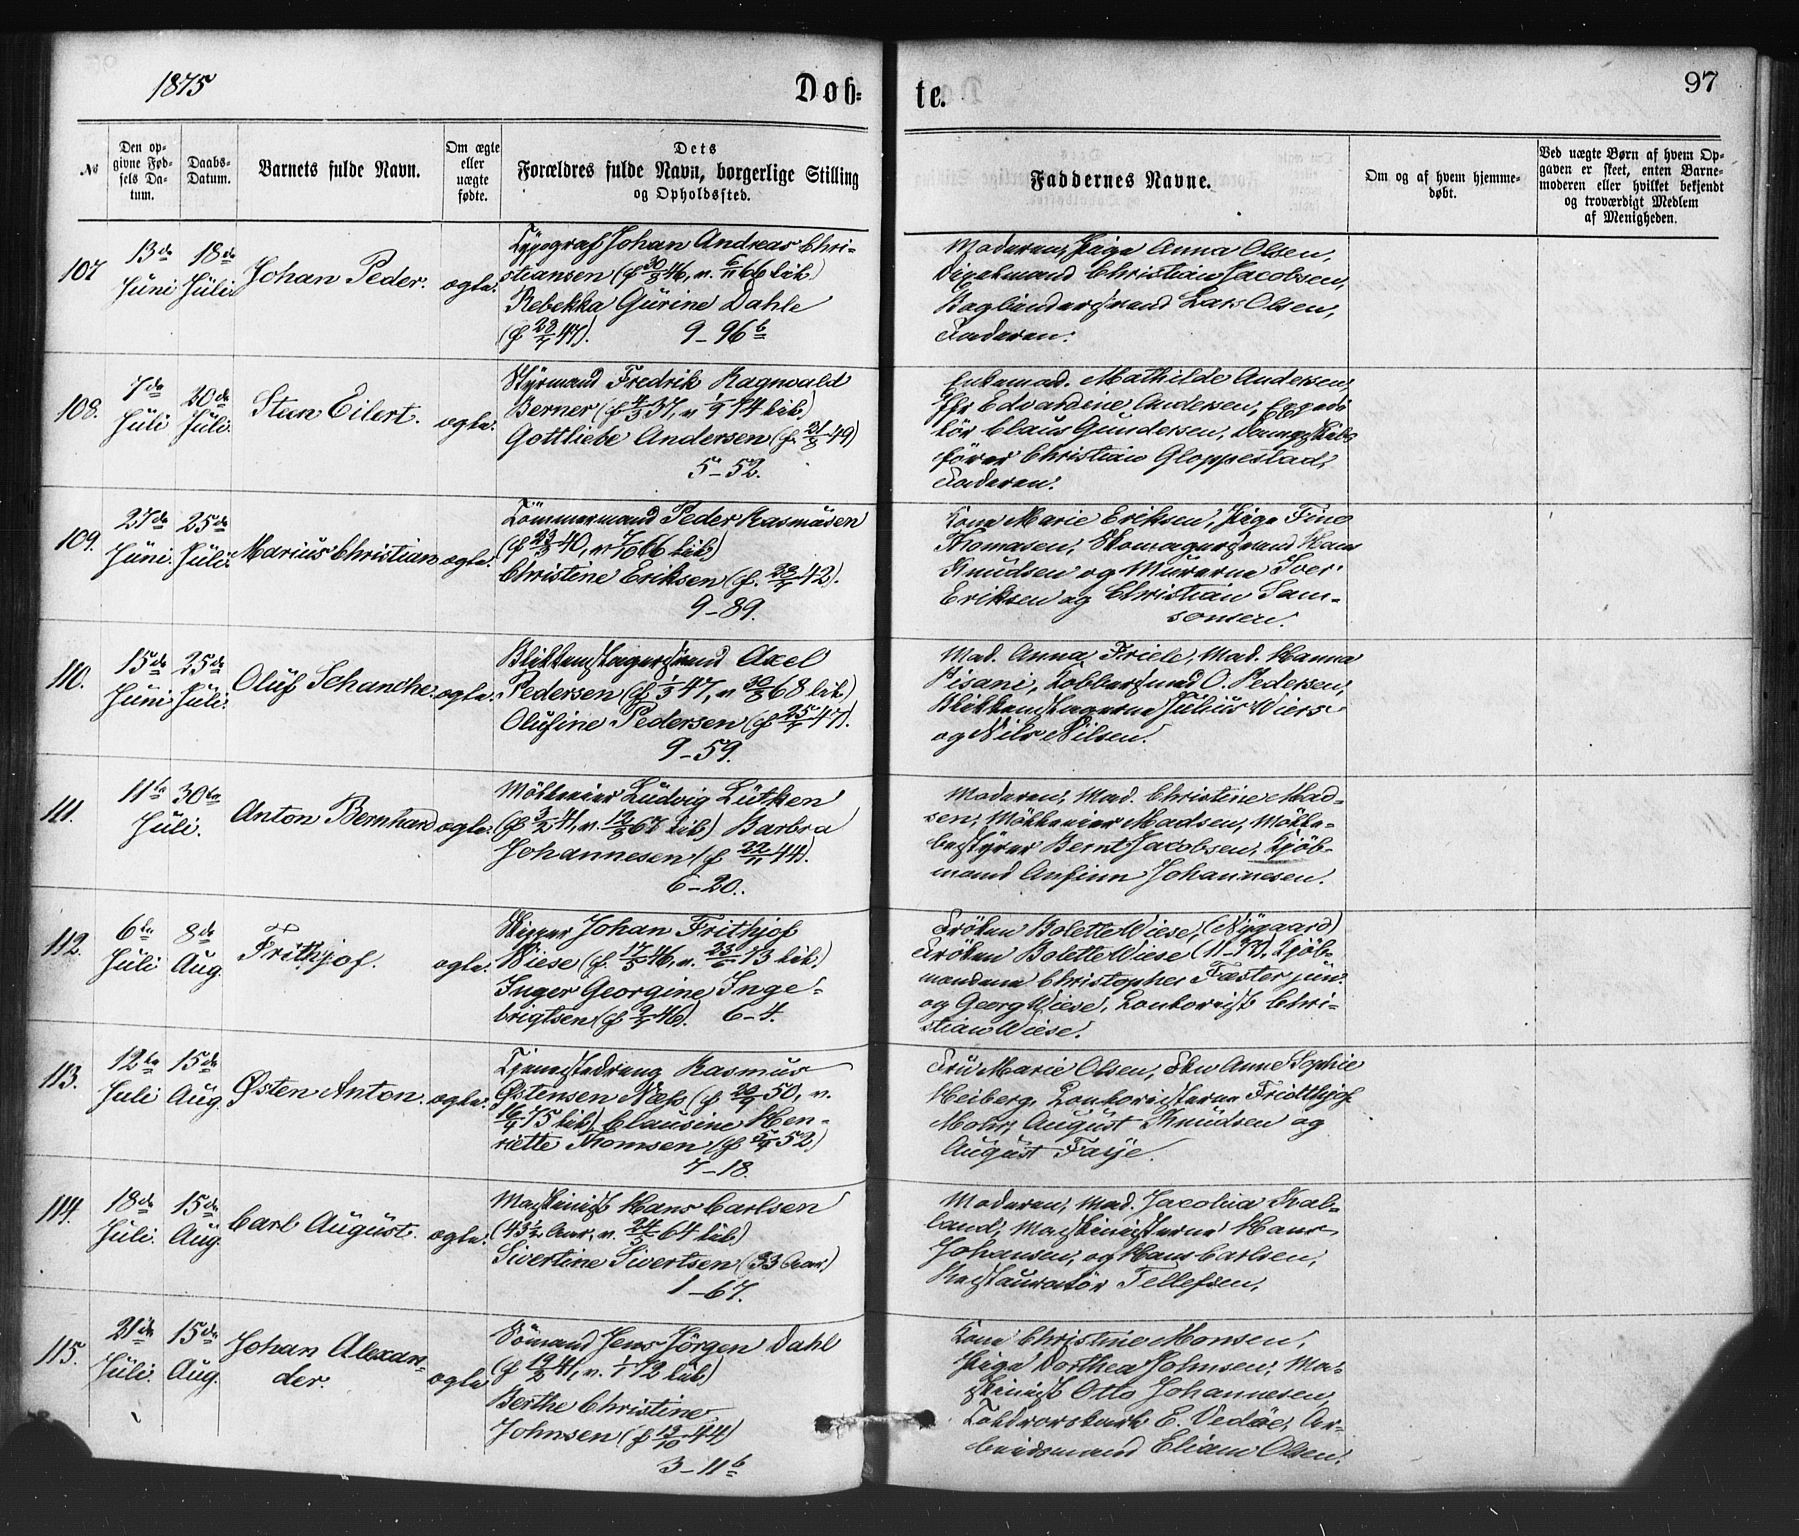 1875
Døb-
te.
97
No
Den op-
givne Fød-
sels Da-
tum.
Daabs-
Datum.
Barnets fulde Navn.
Om ægte
eller
uægte
fødte.
Dets
Forældres fulde Navn, borgerlige Stilling
og Opholdssted.
Faddernes Navne.
Om og af hvem hjemme-
døbt.
Ved uægte Børn af hvem Op-
gaven er skeet, enten Barne-
moderen eller hvilket bekjendt
og troværdigt Medlem
af Menigheden.
107
13de
Juni
18de
Juli
Johan Peder.
ægte.
Typograf Johan Andreas Chri-
stiansen (f 30/9 46, v. 6/11 66 kib.)
Rebekka Gurine Dahle
(f 28/1 47).
9-96b
Moderen, Pige Anna Olsen,
Christian Jacobsen,
Bogbindersvend Lars Olsen,
Faderen.
108.
7de
Juli
20de
Juli.
Stun Eilert.
ægte.
Styrmand Fredrik Ragnvald
Berner (f 4/3 37, v 1/9 74 kib.)
Gottliebe Andersen (f. 21/8 49)
5-52.
Enkemad. Mathilde Andersen,
Edvardine Andersen, Expedi
tør Claus Gundersen, Dampskibs
fører Christian Gloppestad,
Faderen.
109.
27de
Juni.
25de
Juli.
Marius Christian
ægte.
Tömmermand Peder Rasmusen
(f 23/3 40, v 7/10 66 kib)
Christine Eriksen (f. 28/1 42).
9-89.
Kone Marie Eriksen, Pige Fine
Thomasen, Skomagersvend Hans
Knudsen og Murerne Iver
Eriksen og Christian Sam-
sonsen.
110.
15de
Juni
25de
Juli.
Oluf Schanche.
ægte.
Blikkenslagersvend Axel
Pedersen (f 1/3 47, v 30/8 68 kib.)
Olufine Pedersen (f 25/1 47).
9-59.
Mad. Anna Friele, Mad. Hanna
Pisani, Kobbersmed O. Pedersen,
Blikkenslagerne Julius Wiers
og Nils Nilsen.
111.
11te
30te
Juli.
Anton Bernhard
ægte.
Mölleeier Ludvig Lütken
(f 3/2 41, v. 12/5 67 kib) Barbra
Johannesen (f 22/11 44).
6-20.
Moderen, Mad. Christine Mad-
sen, Mölleeier Madsen, Mölle-
bestyrer Bernt Jacobsen, Kjöb-
mand Anfinn Johannesen.
112.
6te
Juli
8de
Aug.
Frithjof.
ægte.
Skipper Johan Frithjof
Wiese (f. 17/5 46, v. 23/6 73 kib.)
Inger Georgine Inge-
brigtsen (f 9/1 46).
6-4.
Fröken Bolette Wiese, (Nygaard)
Fröken Bolette Wiese, Kjöb-
mændene Christopher Fæster jun.
og Georg Wiese, Kontorist Chri-
stian Wiese.
113.
12te
Juli
15de
Aug
Østen Anton.
ægte.
Tjenestedreng Rasmus
Østensen Næss (f 20/9 50, v.
16/4 75 kib) Clausine Hen-
riette Thomsen (f 5/1 52)
7-18.
Fru Marie Olsen, Anne Sophie
Heiberg, Kontoristerne Fridtthjof
Mohr, August Knudsen og
August Fasje.
114.
18de
Juli.
15de
Aug.
Carl August.
ægte.
Maskinist Hans Carlsen
(43½ Aar, v. 24/5 64 kib.)
Sivertine Sivertsen (33 Aar)
1-67.
Moderen, Mad. Jacobia Kal-
land, Maskinisterne Hans
Johansen, og Hans Carlsen,
Restauratör Tellefsen.
115.
21de
Juli.
15de
Aug.
Johan Alexan-
der.
ægte
Sömand Jens Jörgen Dahl
(f 19/2 41, v. 1/1 72 kib)
Berthe Christine
Johnsen (f 13/10 44)
3-11b
Kone Christine Monsen,
Pige Dorthea Johnsen, Ma-
skinist Otto Johannesen,
Toldrorskarl E. Vedöe, Ar-
beidsmand Eliam Olsen.